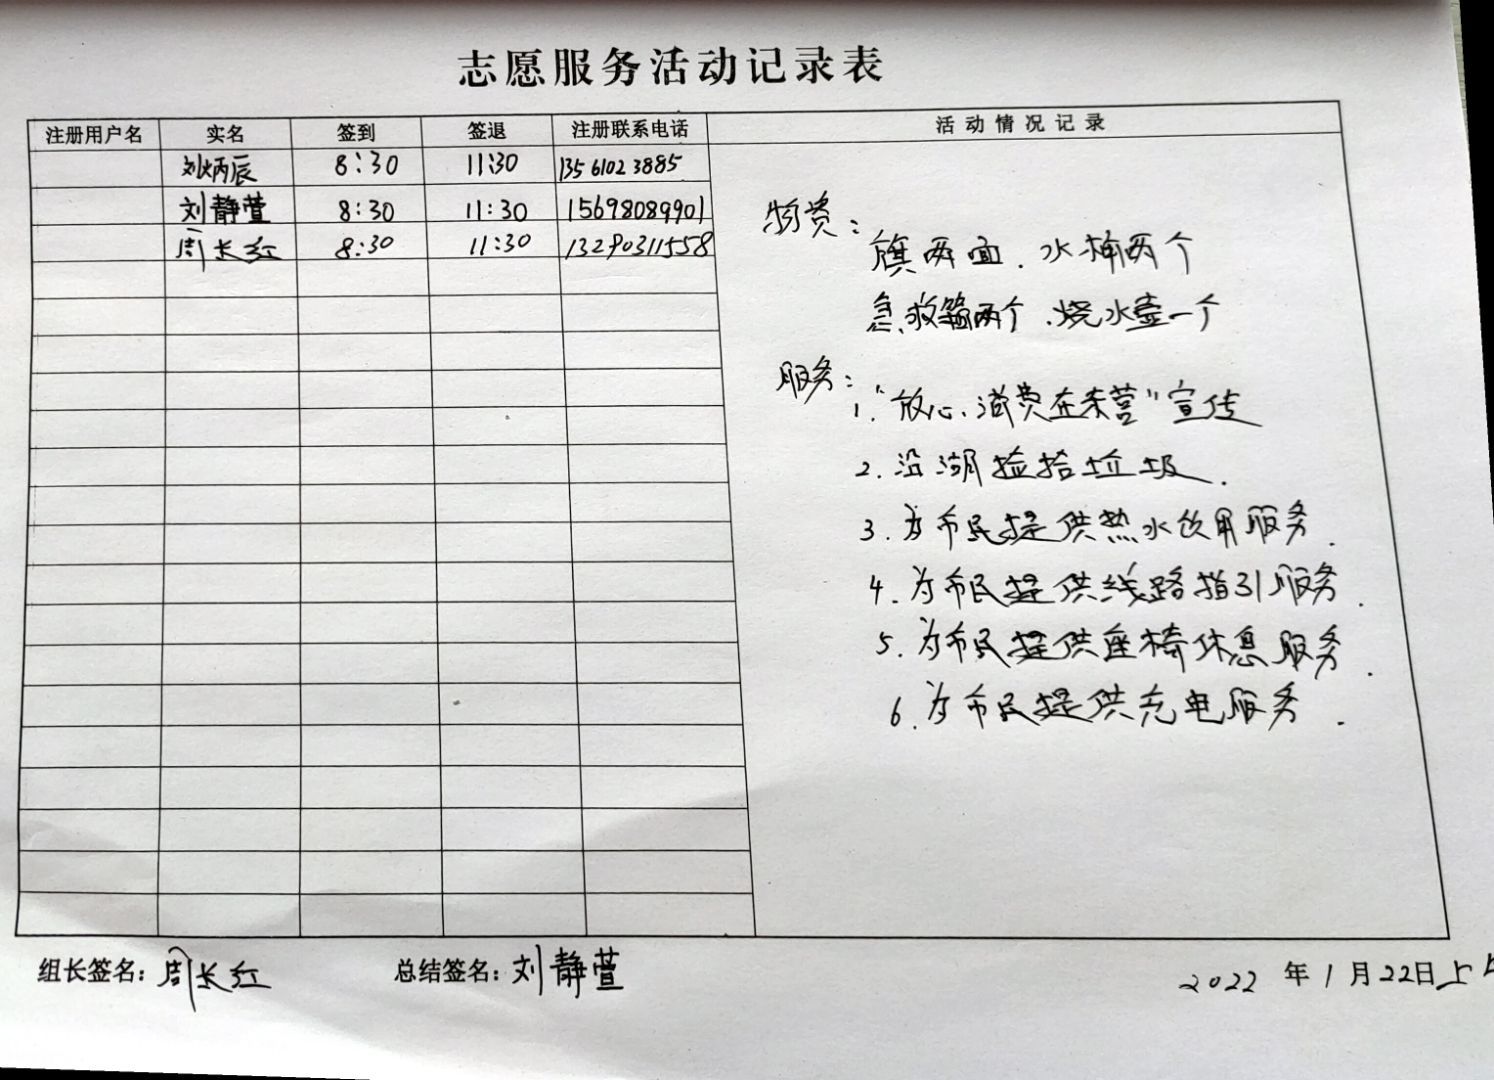 志愿服务活动记录表
注册用户名 实名 签到 签退 注册联系电话 活动情况记录
刘炳辰 8:30 11:30 13561023885
刘静萱 8:30 11:30 15698089901
周长红 8:30 11:30 13290311558
物资:
旗两面、水桶两个
急救箱两个、烧水壶一个
服务:
1."放心消费在东营"宣传
2.沿湖捡拾垃圾.
3.为市民提供热水饮用服务.
4.为市民提供线路指引服务.
5.为市民提供座椅休息服务.
6.为市民提供充电服务.
组长签名:周长红 总结签名:刘静萱 2022年1月22日上午